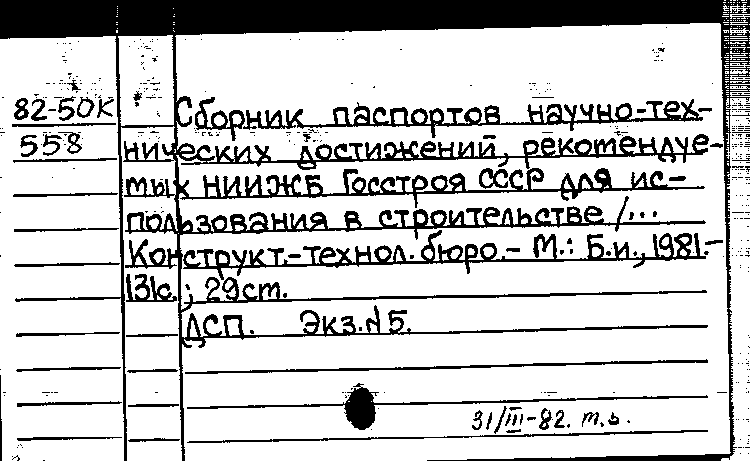 82-50К
558
Сборник паспортов научно-тех-
нических достижений, рекомендуе-
мых НИИЖБ Госстроя СССР для ис-
пользования в строительстве /...
Конструкт.-технол. бюро.- М.: Б.и., 1981.-
131с.; 29см.
ДСП. Экз.N5.
31/III-82. т.ь.